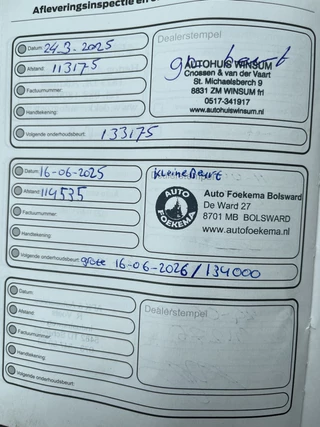 Afleveringsinspectie en
Datum: 24-3-2025
Afstand: 113175
Factuurnummer:
Handtekening:
Volgende onderhoudsbeurt: 133175
Dealerstempel
AUTOHUIS WINSUM
Cnossen & van der Vaart
St. Michaelsberch 9
8831 ZM WINSUM frl
0517-341917
www.autohuiswinsum.nl
Datum: 16-06-2025
Afstand: 114535
Factuurnummer:
Handtekening:
Volgende onderhoudsbeurt: grote 16-06-2026/134000
kleine Beurt
AUTO
FOEKEMA
Auto Foekema Bolsward
De Ward 27
8701 MB BOLSWARD
www.autofoekema.nl
Datum:
Afstand:
Factuurnummer:
Handtekening:
Volgende onderhoudsbeurt:
Dealerstempel